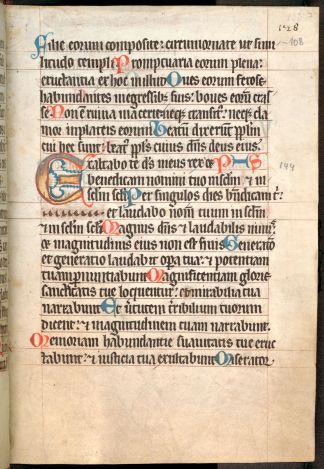 128
108
Filie eorum composite: circumornate ut simi
litudo templi. Promptuaria eorum plena:
eructantia ex hoc in illud. Oues eorum fetose
habundantes in egressib' suis: boues eorum cras
se. Non est ruina macerie neq; transit': neq; cla
mor in plateis eorum. Beatum dixerunt pplm
cui hec sunt: beat' ppls cuius dns deus eius.
Exaltabo te ds meus rex &
144
benedicam nomini tuo in sclm & in
sclm scli. Per singulos dies bndicam t':
et laudabo nom tuum in sclm
& in sclm scli. Magnus dns & laudabilis nimis:
& magnitudinis eius non est finis. Generatio
et generatio laudabit opa tua: & potentiam
tuam pnuntiabunt. Magnificentiam glorie
sanctitatis tue loquentur: et mirabilia tua
narrabunt. Et uirtutem terribilium tuorum
dicent: & magnitudinem tuam narrabunt.
Memoriam habundantie suauitatis tue eruc
tabunt: & iusticia tua exultabunt. Miserator